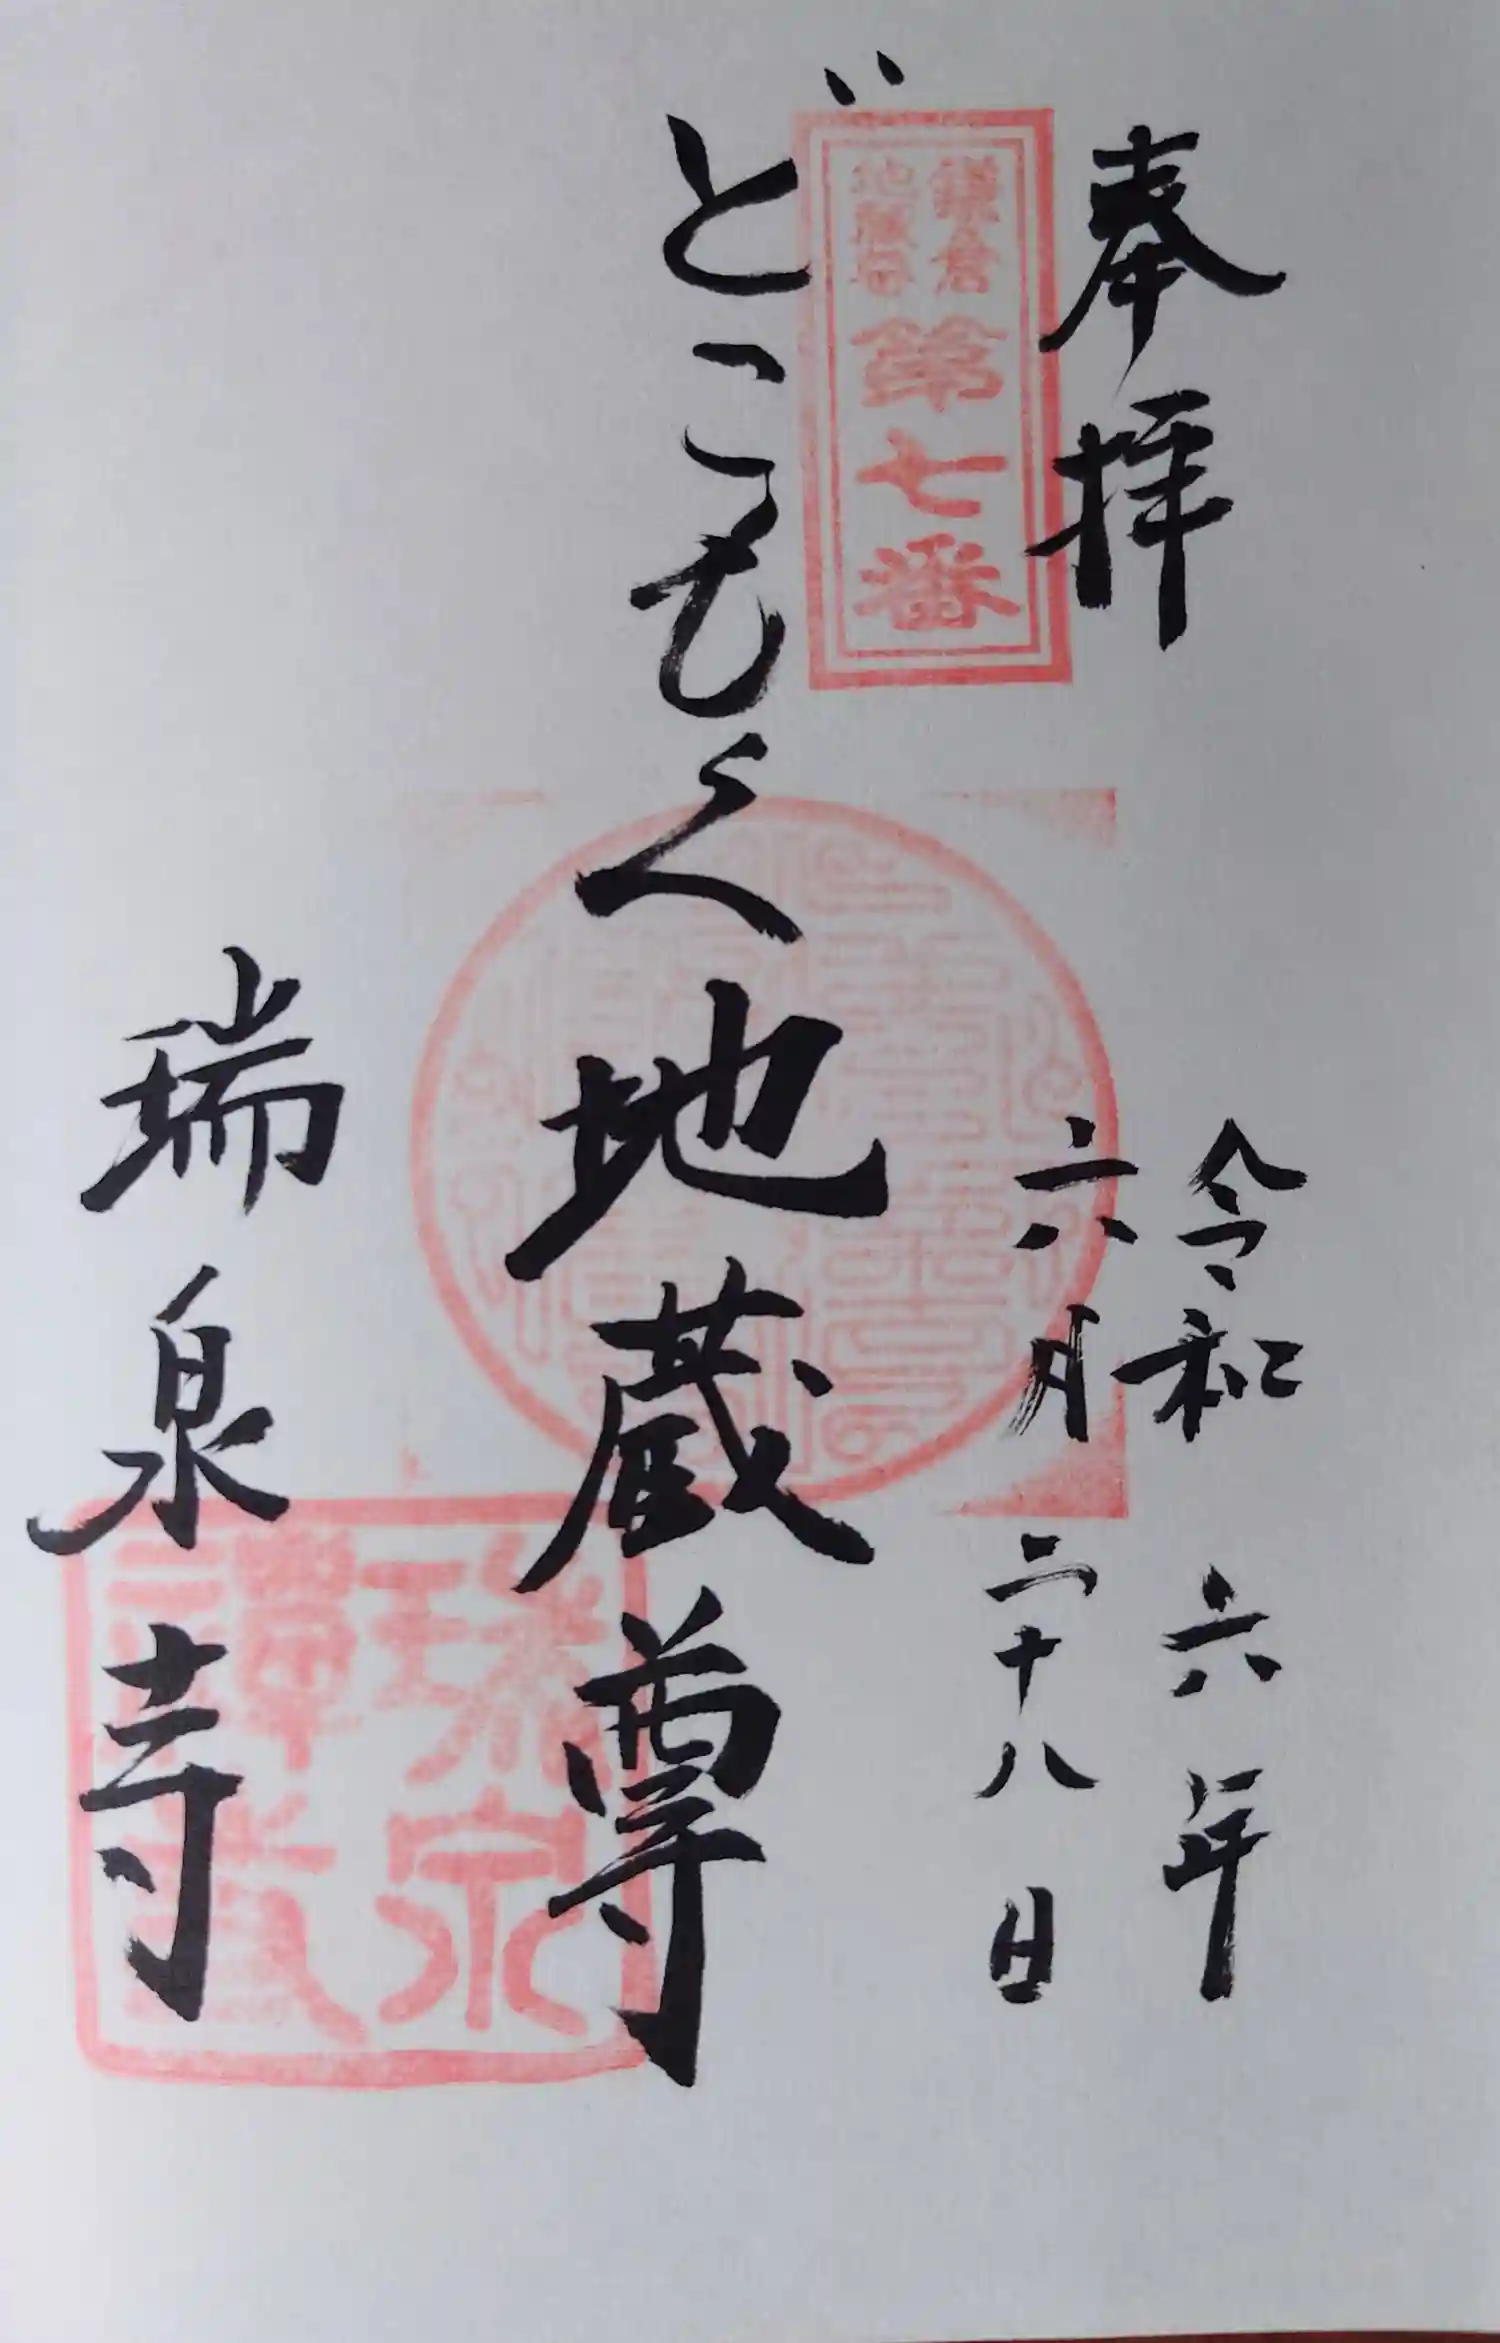 奉拝
令和六年
六月二十八日
鎌倉
地蔵尊
第七番
どこもく地蔵尊
瑞泉寺